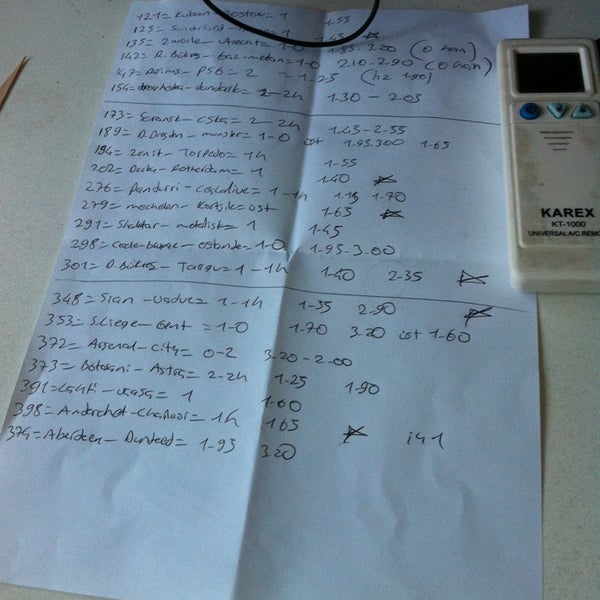 121= Kuban - Rostow= 1 1-55
125= 1 1-45
135= Zwolle - Utrecht= 1-0 1.85- 3.20 (0 han)
142= D. Bükreş - Gaz-metan= 1-0 2.10-2.90 (0 han)
147= Reims - PSG = 2 - 1-25 (h2 1.90)
154= drogheda - dundalk= 2-2h 1-30 - 2.03
173= Saransk - CSKA= 2 - 2h 1.43-2-55
189= D. Dresden - munster= 1-0 üst 1.95.300 1-65
194= Zenit - Torpedo= 1h 1-55
202= Dordr - Rotherdam= 1 1-40
276= Pandurri - ceahlaul= 1-1h 1.15 1-70
279= mechelen - Kortjik= üst 1-65
291= Shaktar - metalist= 1 1-45
298= Cercle-brugge - ostende= 1-0 1-95-3.00
301= D. Bükreş - Targu= 1-1h 1-40 2-35
348= Sion - Vaduz= 1-1h 1-35 2.90
353= S.Liege - Gent = 1-0 1-70 3.20 üst 1-60
372= Arsenal - City= 0-2 3-20-2-00
373= Botosani - Astra= 2-2h 1-25 1-90
391= Lahti - = 1 1-60
398= Anderlecht - Charleroi= 1h 1-65
374= Aberdeen - Dundeed= 1-95 3.20 iy1
KAREX
KT-1000
UNIVERSAL A/C REMO